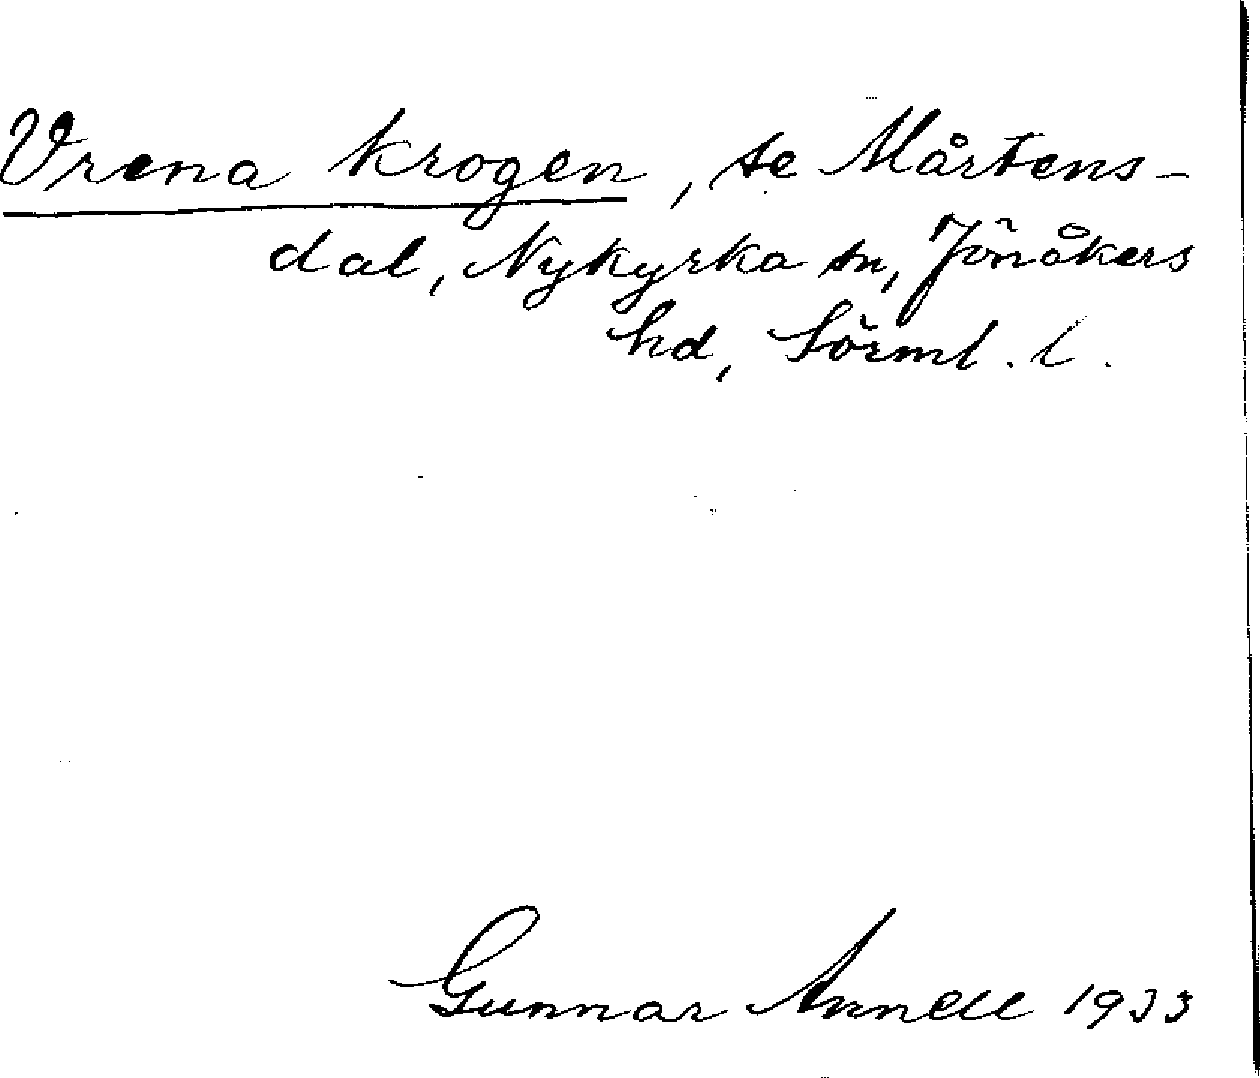 Vrena krogen, se Mårtens-
dal, Nykyrka sn, Jönåkers
hd, Sörml. l.
Gunnar Annell 1933